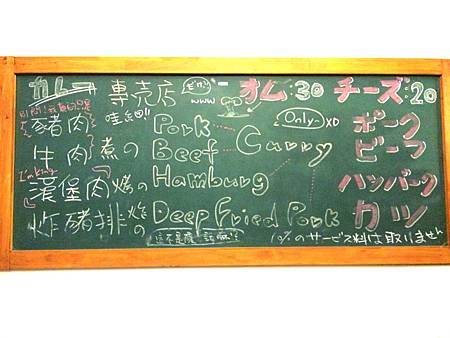 カレー 専売店 www オム:30 チーズ:20
豬肉 Pork Only XD ポーク
牛肉 煮の Beef Curry ビーフ
I'm King
漢堡肉 烤の Hamburg ハンバーグ
炸豬排 炸の Deep Fried Pork カツ
10%のサービス料は取りません